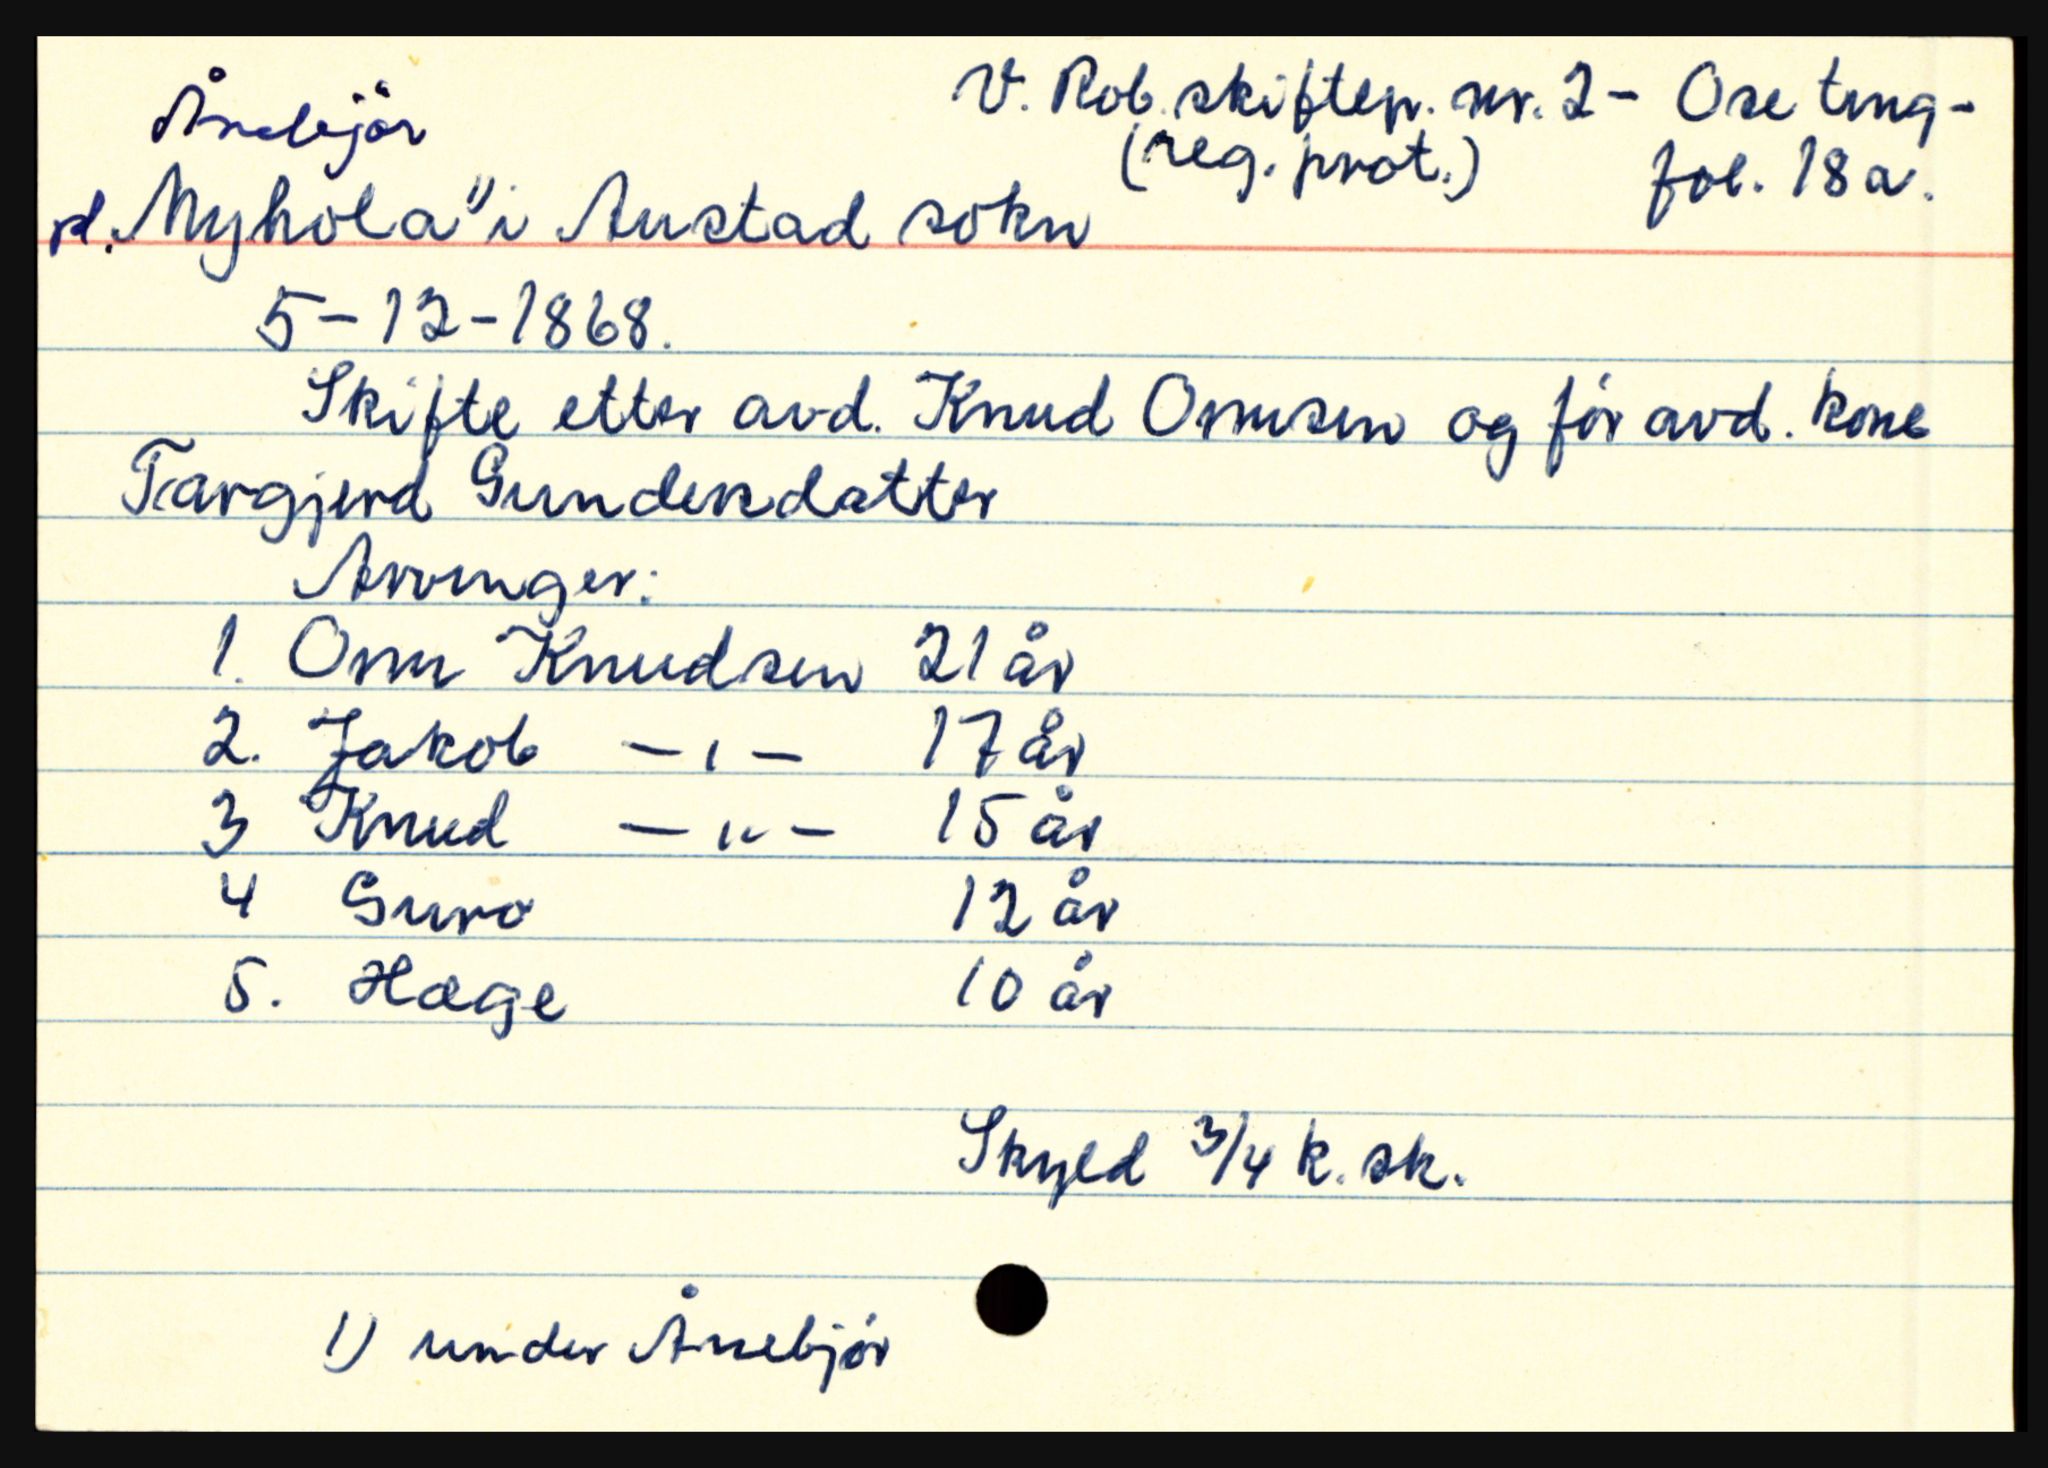 Ånebjör
V. Rob. skiftepr. nr. 2 - Ose ting -
(reg. prot.) fol. 18a.
pl. Nyhola" i Austad sokn
5-12-1868.
Skifte etter avd. Knud Omsen og før avd. kone
Targjerd Gundersdatter
Arvinger:
1. Omm Knudsen 21 år
2. Jakob —ı— 17 år
3 Knud —"— 15 år
4 Guro 12 år
5. Hæge 10 år
Skyld 3/4 k. sk.
1) under Ånebjør